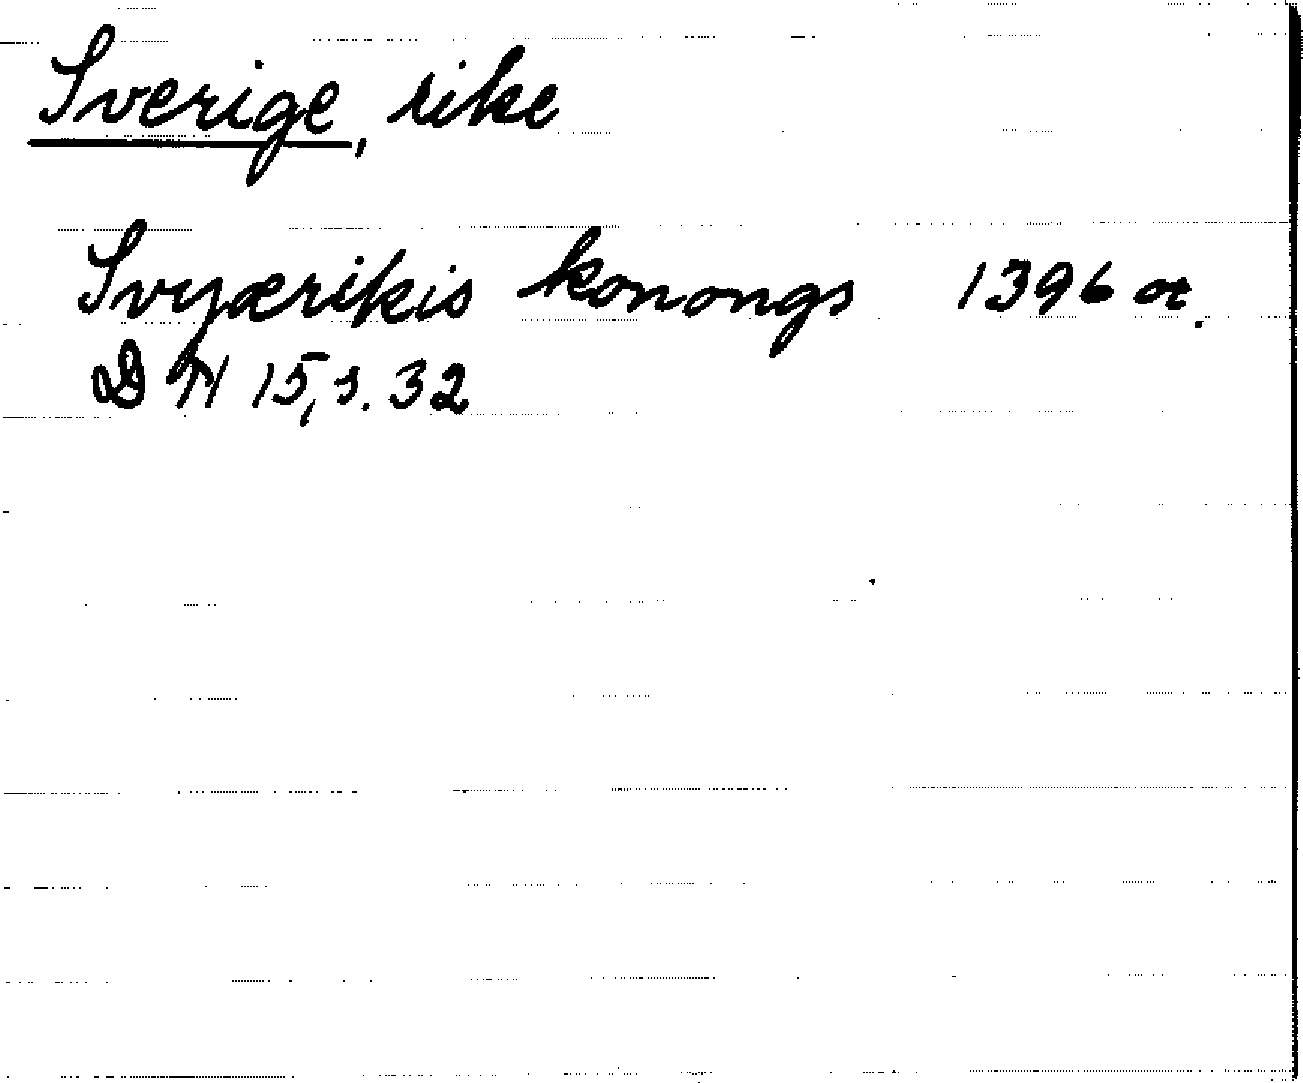 Sverige, rike
Svyærikis konongs 1396 or.
DN 15, s. 32